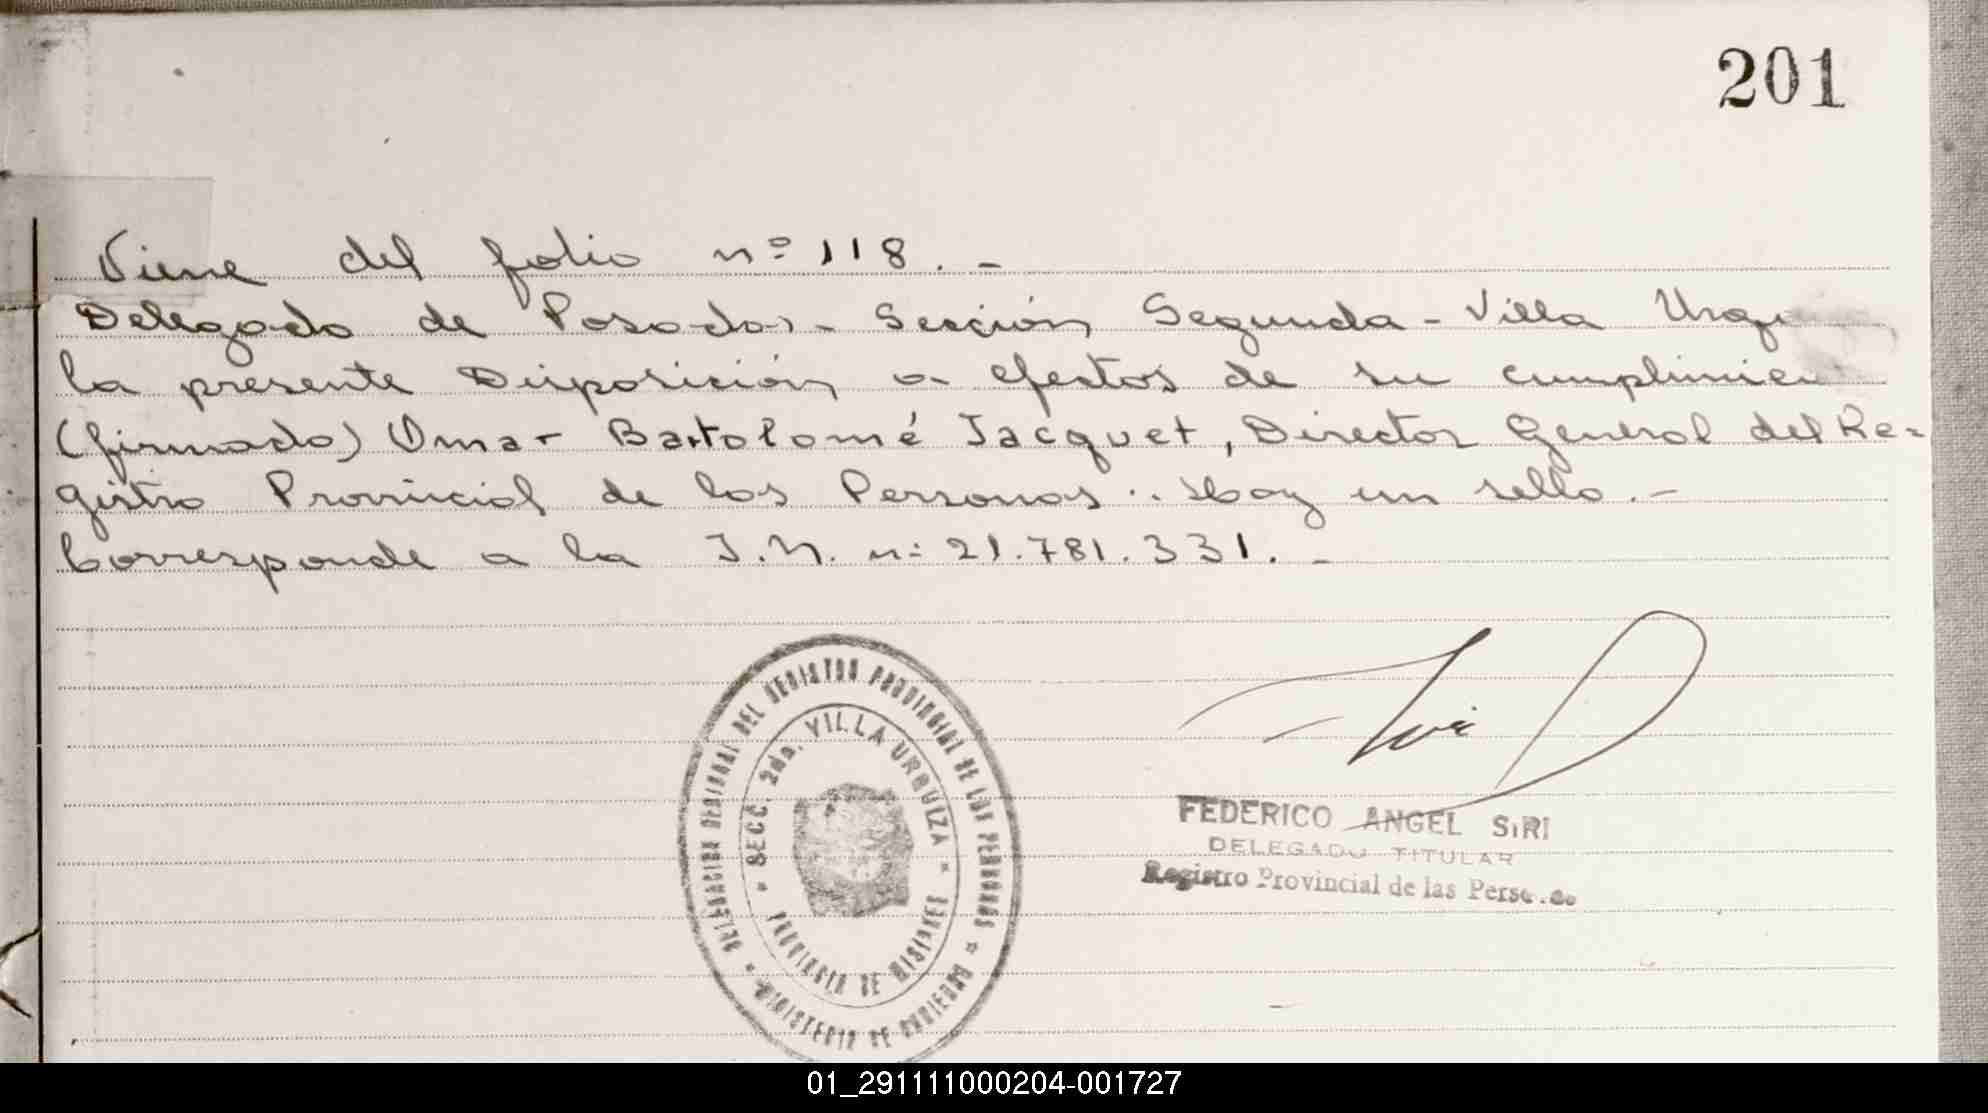 201
Viene del folio nº 118. -
Delegado de Posadas - Sección Segunda - Villa Urqu
la presente Disposición a efectos de su cumplimien
(firmado) Omar Bartolomé Jacquet, Director General del Re-
gistro Provincial de las Personas.. Hay un sello. -
Corresponde a la I.N. nº 21.781.331. -
DELEGACION REGIONAL DEL REGISTRO PROVINCIAL DE LAS PERSONAS * MINISTERIO DE GOBIERNO *
* SECC. 2da. VILLA URQUIZA * PROVINCIA DE MISIONES
FEDERICO ANGEL SIRI
DELEGADO TITULAR
Registro Provincial de las
01_291111000204-001727